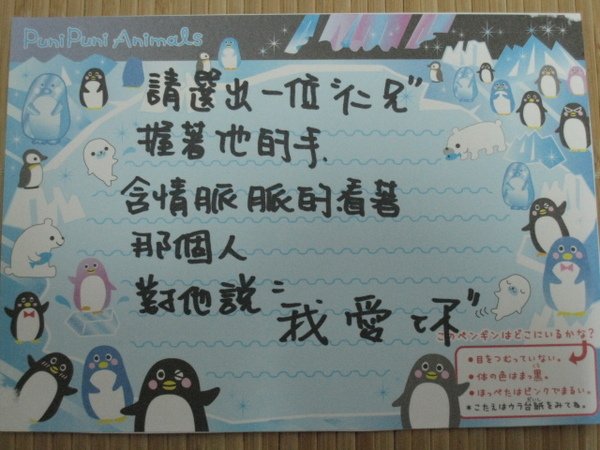 PuniPuni Animals
請選出一位"仁兄"
握著他的手
含情脈脈的看著
那個人
對他說："我愛你"
このペンギンはどこにいるかな?
●目をつむっていない。
●体の色はまっ黒。
●ほっぺたはピンクでまるい。
★こたえはウラ台紙をみてね。